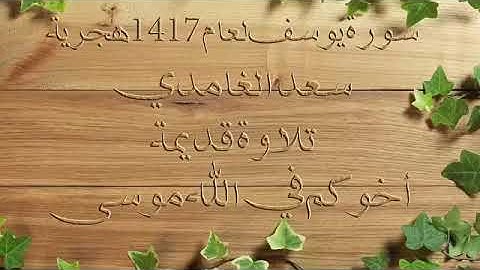 سورة يوسف لعام 1417 هجرية
سعد الغامدي
تلاوة قديمة
أخوكم في الله موسى